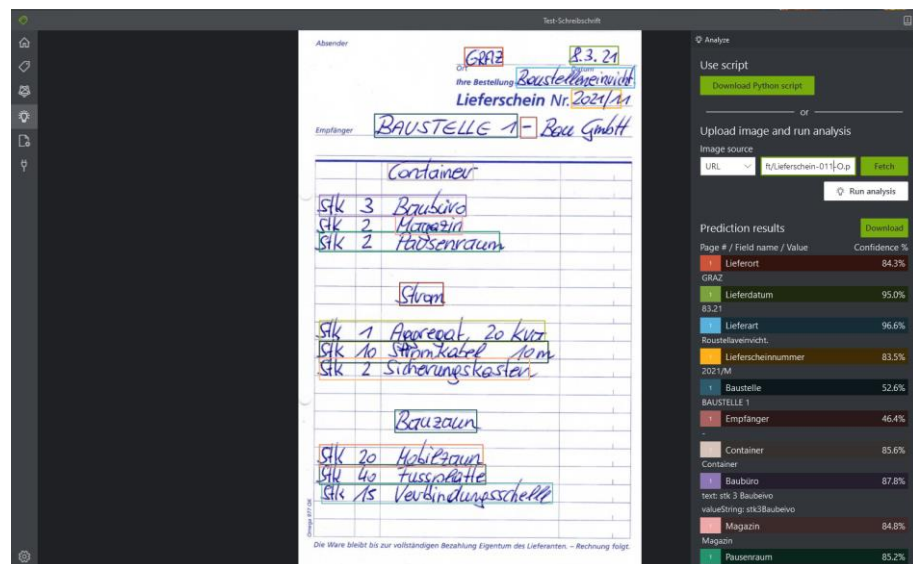 Test-Schreibschrift
Absender
GRAZ 8.3.21
Ort Datum
Ihre Bestellung Baustelleneinricht
Lieferschein Nr. 2021/11
Empfänger BAUSTELLE 1 - Bau GmbH
Container
Stk 3 Baubüro
Stk 2 Magazin
Stk 2 Pausenraum
Strom
Stk 1 Aggregat, 20 kva
Stk 10 Stromkabel 10m
Stk 2 Sicherungskasten
Bauzaun
Stk 20 Mobilzaun
Stk 40 Fussplatte
Stk 15 Verbindungsschelle
Omega 977 OK
Die Ware bleibt bis zur vollständigen Bezahlung Eigentum des Lieferanten. – Rechnung folgt.
Analyze
Use script
Download Python script
or
Upload image and run analysis
Image source
URL ft/Lieferschein-011-O.p Fetch
Run analysis
Prediction results Download
Page # / Field name / Value Confidence %
1 Lieferort 84.3%
GRAZ
1 Lieferdatum 95.0%
83.21
1 Lieferart 96.6%
Roustellaveinvicht.
1 Lieferscheinnummer 83.5%
2021/M
1 Baustelle 52.6%
BAUSTELLE 1
1 Empfänger 46.4%
-
1 Container 85.6%
Container
1 Baubüro 87.8%
text: stk 3 Baubeivo
valueString: stk3Baubeivo
1 Magazin 84.8%
Magazin
1 Pausenraum 85.2%